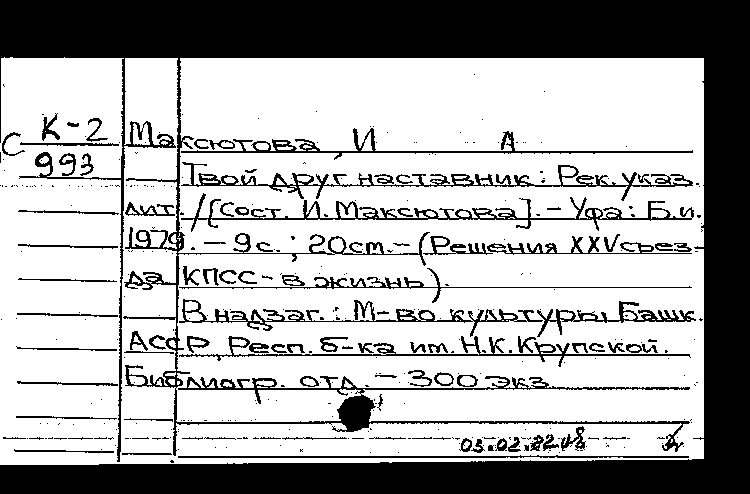 К-2 Максютова, И А
С 993
Твой друг наставник: Рек. указ.
лит. /[Сост. И. Максютова]. - Уфа: Б.и.
1979. - 9с.; 20см. - (Решения XXV съез-
да КПСС - в жизнь).
В надзаг.: М-во культуры Башк.
АССР, Респ. б-ка им. Н.К. Крупской.
Библиогр. отд. - 300 экз
03.02.82